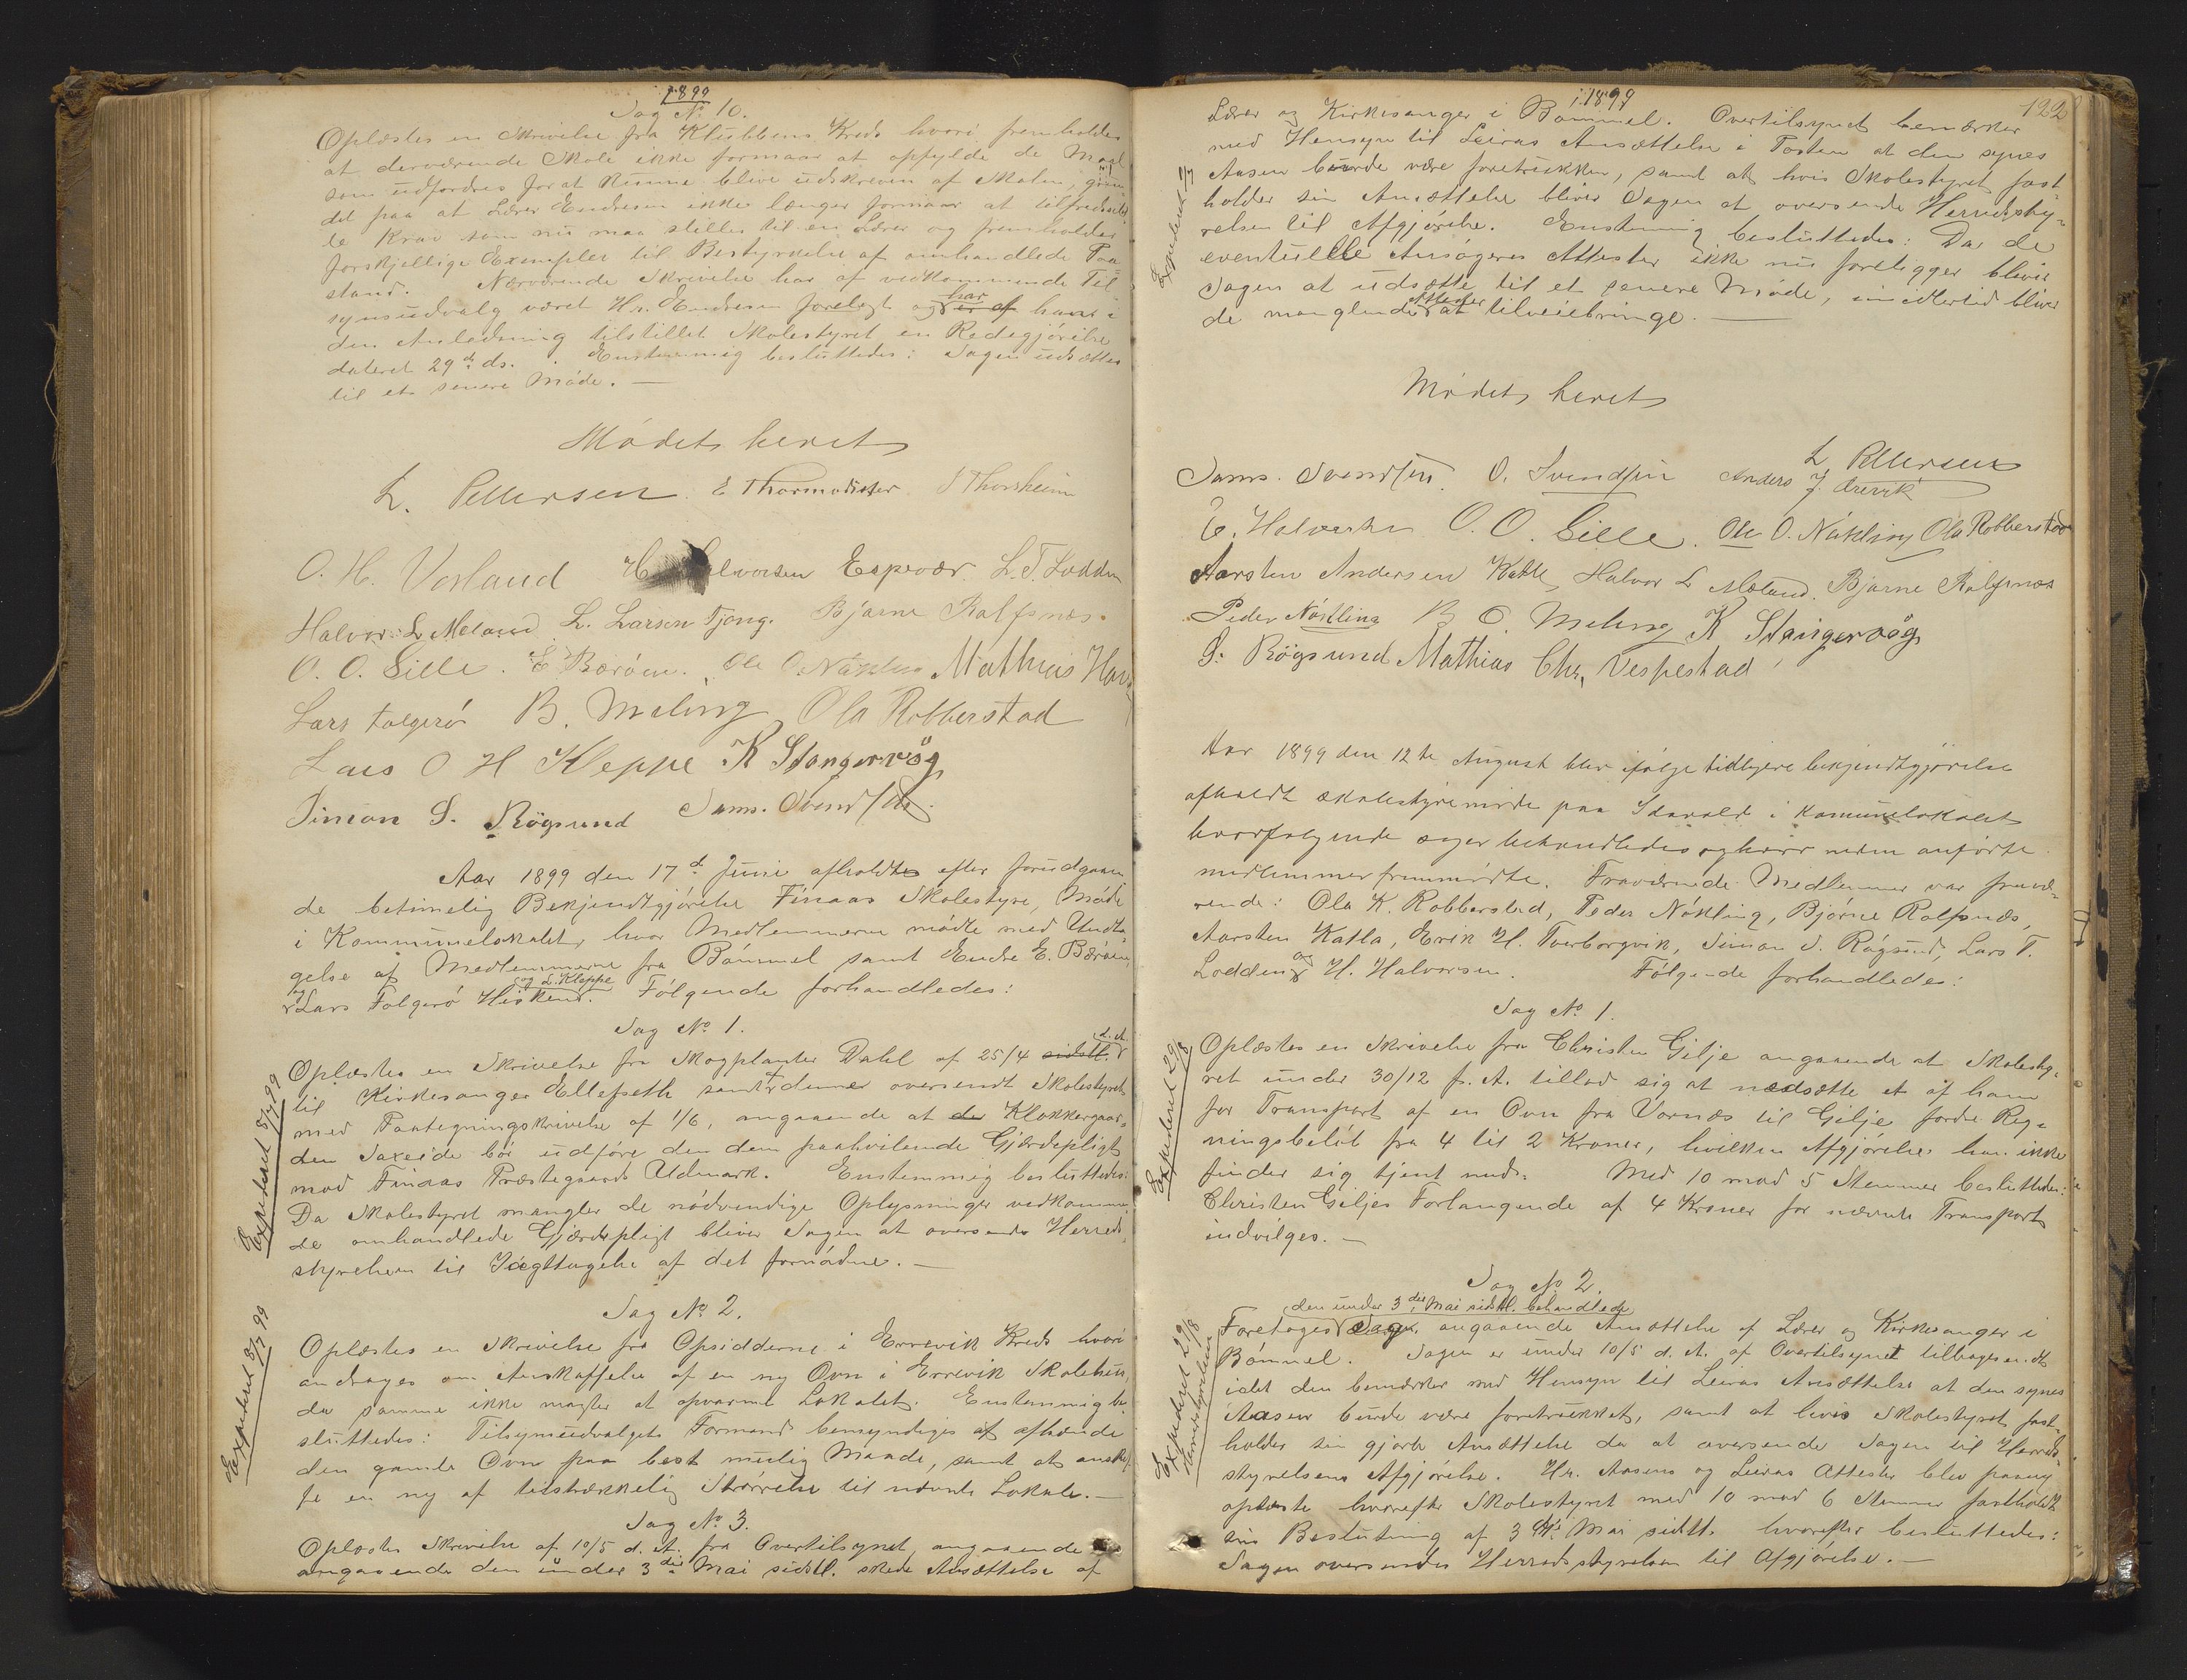 1899
Sag No 10.
Oplæstes en Skrivelse fra Klubbens Kreds hvori fremholdes
at derværende Skole ikke formaar at opfylde de Maal
som udfordres for at kunne blive udskreven af Skolen, grun-
det paa at Lærer Endresen ikke længer formaar at tilfredsstil-
le Krav som nu maa stilles til en Lærer og fremholder
forskjellige Exempler til Bestyrkelse af omhandlede Paa-
stand. Nærværende Skrivelse har af vedkommende Til-
synsudvalg været Hr. Endresen forelagt og har er af hans i
den Anledning tilstillet Skolestyret en Redegjörelse
dateret 29de ds. Enstemmig besluttedes: Sagen udsættes
til et senere Möde. —
Mödet hevet
L. Pettersen. E Thormodsæter S Thorsheim
O. H. Vorland H Halvorsen Espevær L. T. Lodden
Halvor L Meland L. Larsen Tjong. Bjarne Rolfsnes.
O. O. Gille. E Bæröen. Ole O. Nökling Mathias
Lars Folgerö B. Meling Ola Robberstad
Lars O H Kleppe K Stangervåg
Simon S. Rögsund Sams. Svendsen.
Aar 1899 den 17de Juni afholdtes efter forudgaaen
de betimelig Bekjendtgjörelse Finaas Skolestyre, Möde
i Kommunelokalet, hvor Medlemmerne mödte med Undta-
gelse af Medlemmerne fra Bömmel samt Endre E. Bæröen,
og Lars Folgerö Hisken og L. Kleppe. Fölgende forhandledes:
Sag No 1.
Oplæstes en Skrivelse fra Skogplanter Dahl af 25/4 sidstl. d. A.
til Kirkesanger Ellefseth samt denne oversendt Skolestyret
med Paategningsskrivelse af 1/6, angaaende at de Klokkergaar-
den Saxeide bör udföre den dem paahvilende Gjærdepligt
mod Finaas Præstegaards Udmark. Enstemmig besluttedes:
Da Skolestyret mangler de nödvendige Oplysninger vedkommen-
de omhandlede Gjærdepligt bliver Sagen at oversende Herreds-
styrelsen til Iagttagelse af det fornödne. —
Expederet 3/7 99
Sag No 2.
Oplæstes en Skrivelse fra Opsidderne i Ervevik Kreds hvori
andrages om Anskaffelse af en ny Ovn i Ervevik Skolehus,
da samme ikke magter at opvarme Lokalet. Enstemmig be-
sluttedes: Tilsynsudvalgets Formand bemyndiges at afhænde
den gamle Ovn paa best mulig Maade, samt at anskaf-
fe en ny af tilstrækkelig Störrelse til nævnte Lokale. —
Expederet 3/7 99
Sag No 3.
Oplæstes Skrivelse af 10/5 d. A. fra Overtilsynet, angaaende
angaaende den under 3die Mai sidstl. skede Ansættelse af
1899
122
Lærer og Kirkesanger i Bömmel. Overtilsynet bemærker
med Hensyn til Leiras Ansættelse i Posten at den synes
Aasen burde være foretrukken, samt at hvis Skolestyret fast-
holder sin Ansættelse bliver Sagen at oversende Herredssty-
relsen til Afgjörelse. Enstemmig besluttedes: Da de
eventuelle Ansögeres Attester ikke nu foreligger bliver
Sagen at udsætte til et senere Möde, imidlertid bliver
de manglende Attester at tilveiebringe. —
Expederet
Mödet hevet
L Pettersen
Sams. Svendsen. O. Svendsen Anders J. Ærevik
E. Halvorsen O. O. Gille. Ole O. Nökling Ola Robberstad
Aarsten Andersen Katle Halvor L Meland. Bjarne Rolfsnes
Peder Nökling B O. Meling K Stangervåg
S. Rögsund Mathias Chr. Vespestad
Aar 1899 den 12te August blev ifölge tidligere bekjendtgjörelse
afholdt skolestyremöde paa Idavold i komunelokalet
hvor fölgende sager behandledes og hvor neden anförte
medlemmer fremmödte. Fraværende Medlemmer var fravæ-
rende: Ola K. Robberstad, Peder Nökling, Bjarne Rolfsnæs,
Aarsten Katla, Erik H. Tverborgvik, Simon S. Rögsund, Lars T.
Lodden og H. Halvorsen. Fölgende forhandledes:
Sag No 1.
Oplæstes en Skrivelse fra Christen Gilje angaaende at Skolesty-
ret under 30/12 f. A. tillod sig at nedsætte et af ham
for Transport af en Ovn fra Vornæs til Gilje fordre Reg-
ningsbelöb fra 4 til 2 Kroner, hvilken Afgjörelse han ikke
finder sig tjent med. Med 10 mod 5 Stemmer besluttedes:
Christen Giljes Forlangende af 4 Kroner for nævnte Transport
indvilges. —
Expederet 29/8
Sag No 2.
den under 3die Mai sidstl. behandlede
Foretages Sag angaaende Ansættelse af Lærer og Kirkesanger i
Bömmel. Sagen er under 10/5 d. A. af Overtilsynet tilbagesendt
idet den bemærker med Hensyn til Leiras Ansættelse at den synes
Aasen burde være foretrukket, samt at hvis Skolestyret fast-
holder sin gjorte Ansættelse da at oversende Sagen til Herreds-
styrelsens Afgjörelse. Hr. Aasens og Leiras Attester blev paany
oplæste hvorefter Skolestyret med 10 mod 6 Stemmer fastholdt
sin Beslutning af 3die Mai sidstl. hvorefter besluttedes:
Sagen oversendes Herredsstyrelsen til Afgjörelse. —
Expederet 29/8
Herredsstyrelsen